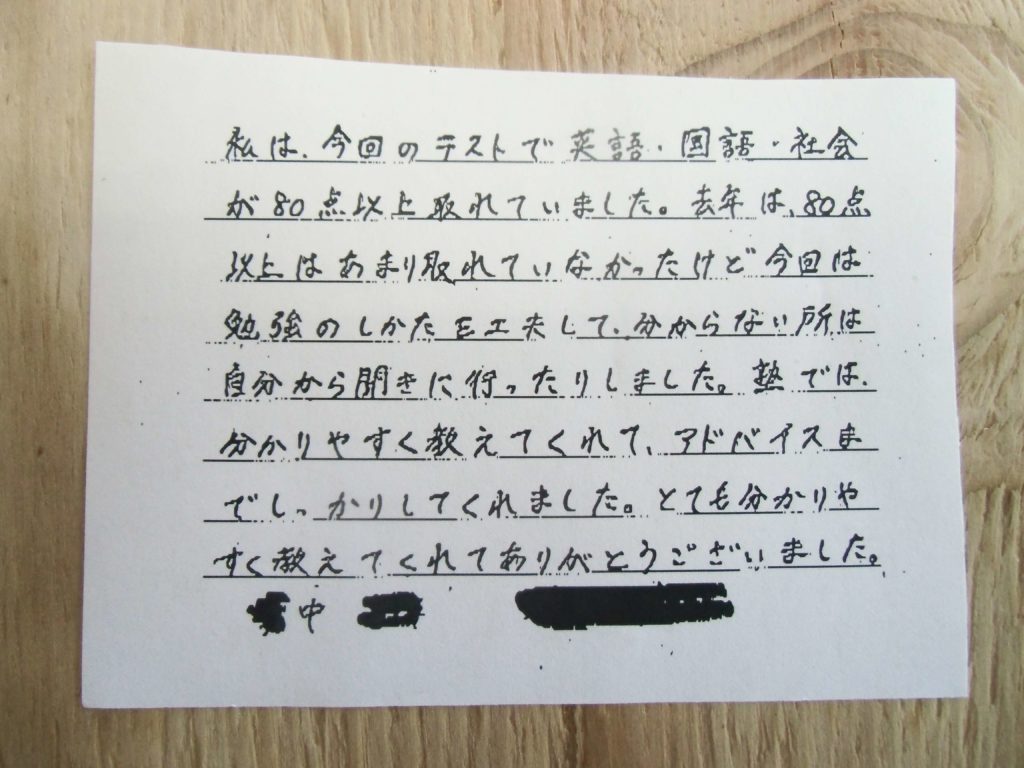 私は、今回のテストで英語・国語・社会
が80点以上取れていました。去年は、80点
以上はあまり取れていなかったけど今回は
勉強のしかたを工夫して、分からない所は
自分から聞きに行ったりしました。塾では、
分かりやすく教えてくれて、アドバイスま
でしっかりしてくれました。とても分かりや
すく教えてくれてありがとうございました。
中